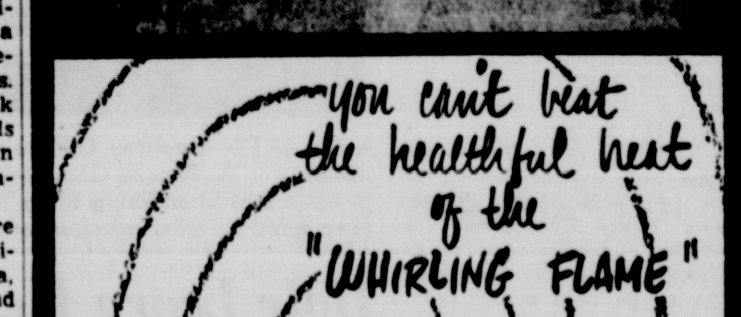 you can't beat
the healthful heat
of the
"WHIRLING FLAME"